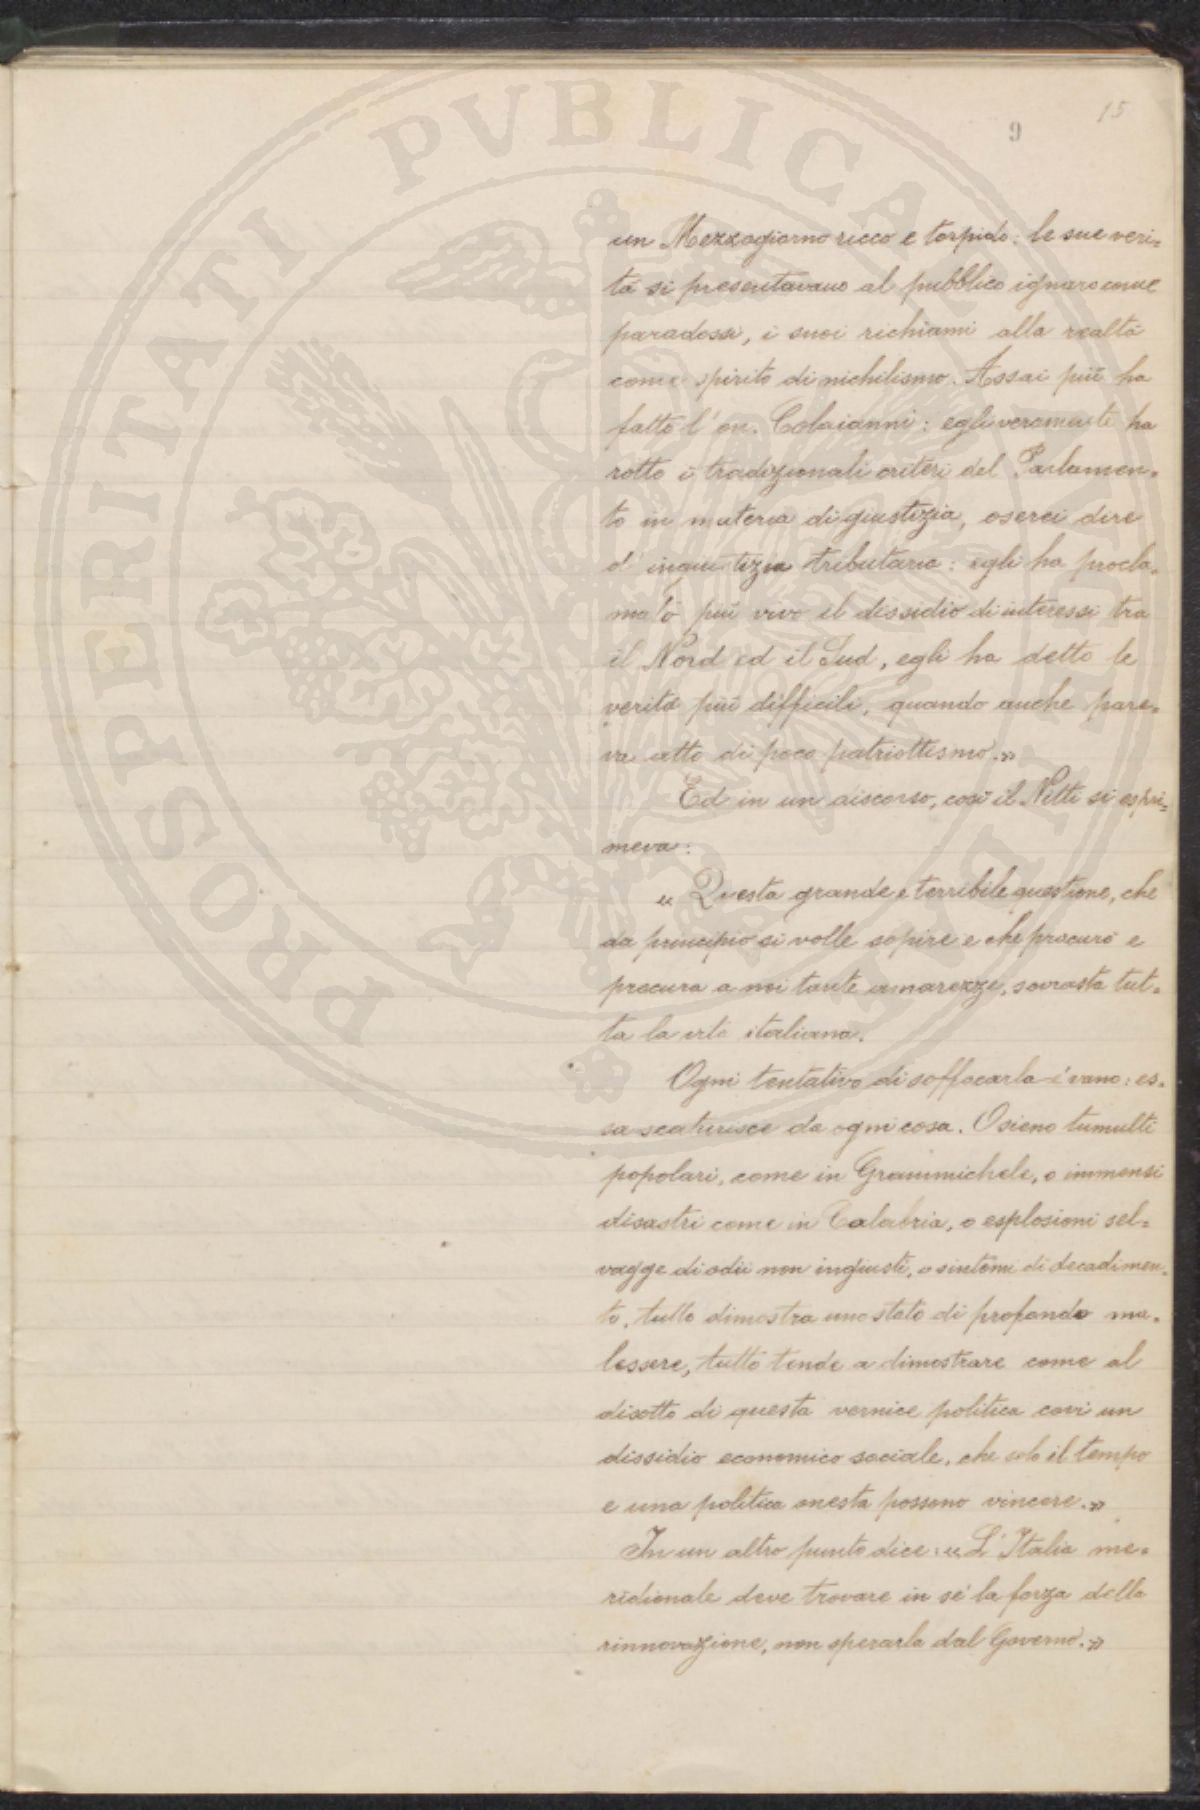 15
9
un Mezzogiorno ricco e torpido: le sue veri=
tà si presentavano al pubblico ignaro come
paradossi, i suoi richiami alla realtà
come spirito di nichilismo. Assai più ha
fatto l'on. Colaianni: egli veramente ha
rotto i tradizionali criteri del Parlamen=
to in materia di giustizia, oserei dire
d'ingiustizia tributaria: egli ha procla=
mato più vivo il dissidio di interessi tra
il Nord ed il Sud, egli ha detto le
verità più difficili, quando anche pare=
va atto di poco patriottismo.»
Ed in un discorso, così il Nitti si espri=
meva:
« Questa grande e terribile questione, che
da principio si volle sopire e che procurò e
procura a noi tante amarezze, sovrasta tut=
ta la italiana.
Ogni tentativo di soffocarla è vano: es=
sa scaturisce da ogni cosa. O sieno tumulti
popolari, come in Grammichele, o immensi
disastri come in Calabria, o esplosioni sel=
vagge di odii non ingiusti, o sintomi di decadimen=
to, tutto dimostra uno stato di profondo ma=
lessere, tutto tende a dimostrare come al
disotto di questa vernice politica covi un
dissidio economico sociale, che solo il tempo
e una politica onesta possono vincere.»
In un altro punto dice: « L'Italia me=
ridionale deve trovare in sè la forza della
rinnovazione, non sperarla dal Governo.»
PROSPERITATI PUBLICAE